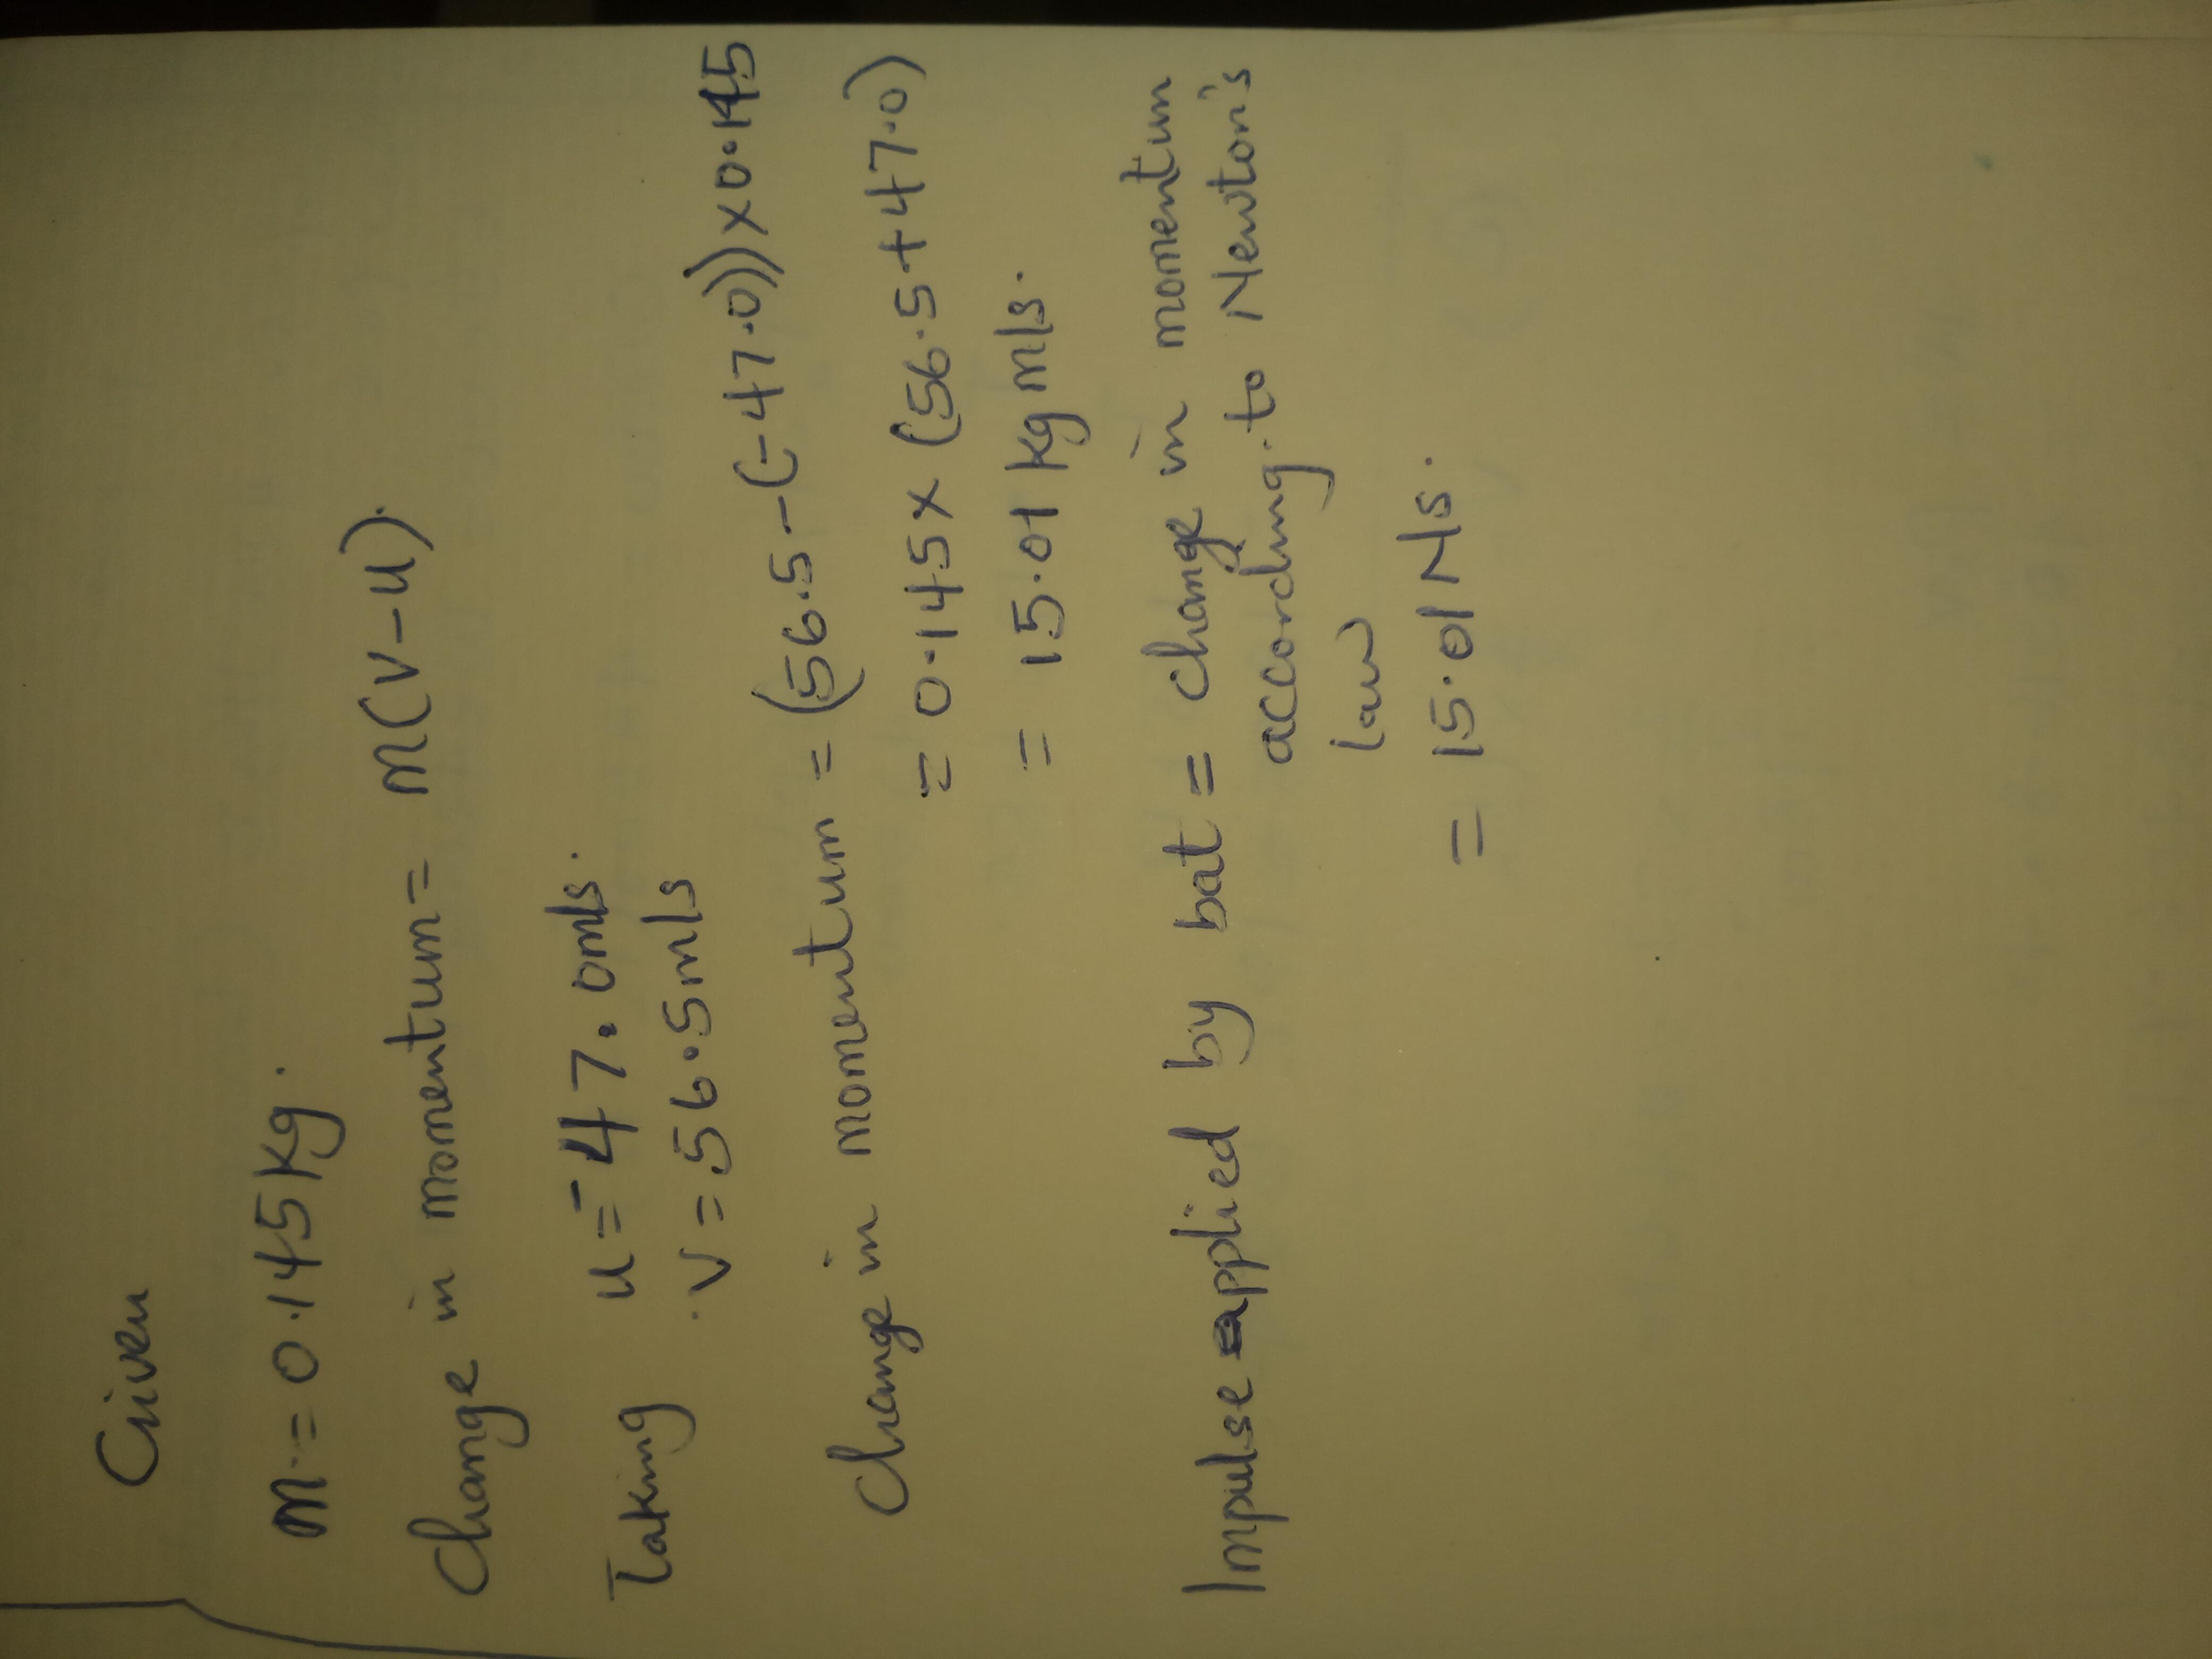 Given
m = 0.145 kg.
Change in momentum = m(v-u).
Taking u = -47.0 m/s.
v = 56.5 m/s
Change in momentum = (56.5-(-47.0))x0.145
= 0.145x (56.5+47.0)
= 15.01 kg m/s.
Impulse applied by bat = change in momentum
according to Newton's
law
= 15.01 N/s.